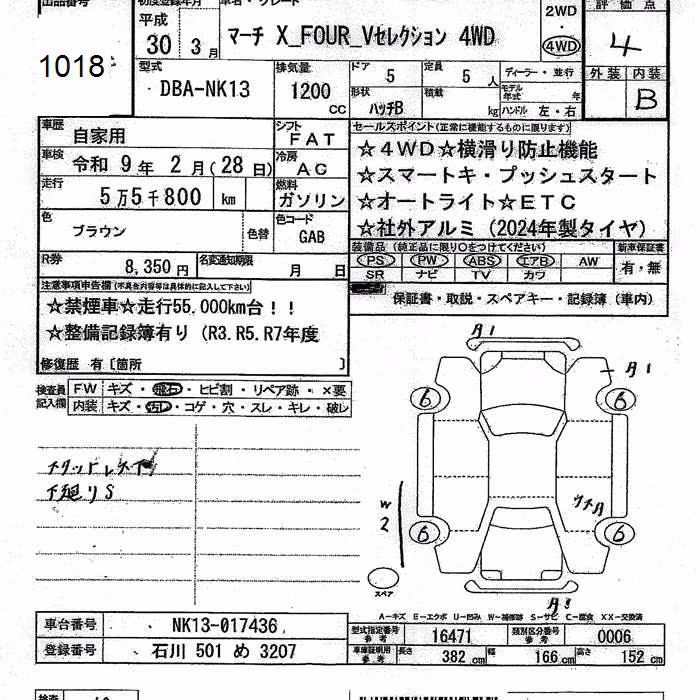 出品番号
1018
初度登録年月
平成
30年3月
車名・グレード
マーチ X_FOUR_Vセレクション 4WD
2WD
4WD
評価点
4
型式
DBA-NK13
排気量
1200
CC
ドア
5
定員
5人
ディーラー・並行
モデル年式 年
外装
内装
B
形状
ハッチB
積載
kg
ハンドル 左・右
車歴
自家用
シフト
FAT
車検
令和 9年 2月(28日)
冷房
AC
走行
5万5千800 km
燃料
ガソリン
色
ブラウン
色替
色コード
GAB
R券
8,350円
名変通知期限
月 日
セールスポイント(正常に機能するものに限ります)
☆4WD☆横滑り防止機能
☆スマートキ・プッシュスタート
☆オートライト☆ETC
☆社外アルミ(2024年製タイヤ)
装備品(純正品に限り○をつけてください)
新車保証書
PS PW ABS エアB AW
有・無
SR ナビ TV カワ
保証書・取説・スペアキー・記録簿(車内)
注意事項申告欄(不具合内容等は具体的に記入して下さい)
☆禁煙車☆走行55.000km台!!
☆整備記録簿有り(R3.R5.R7年度
修復歴 有〔箇所 〕
検査員記入欄
FW キズ・飛石・ヒビ割・リペア跡・×要
内装 キズ・汚レ・コゲ・穴・スレ・キレ・破レ
下廻りS
タ1
タ1
6
6
W2
6
6
スペア
A-キズ E-エクボ U-凹み W-補修跡 S-サビ C-腐食 XX-交換済
車台番号
NK13-017436
型式指定番号 参考
16471
類別区分番号 参考
0006
登録番号
石川 501 め 3207
車庫証明用 参考
長さ 382cm
幅 166cm
高さ 152cm